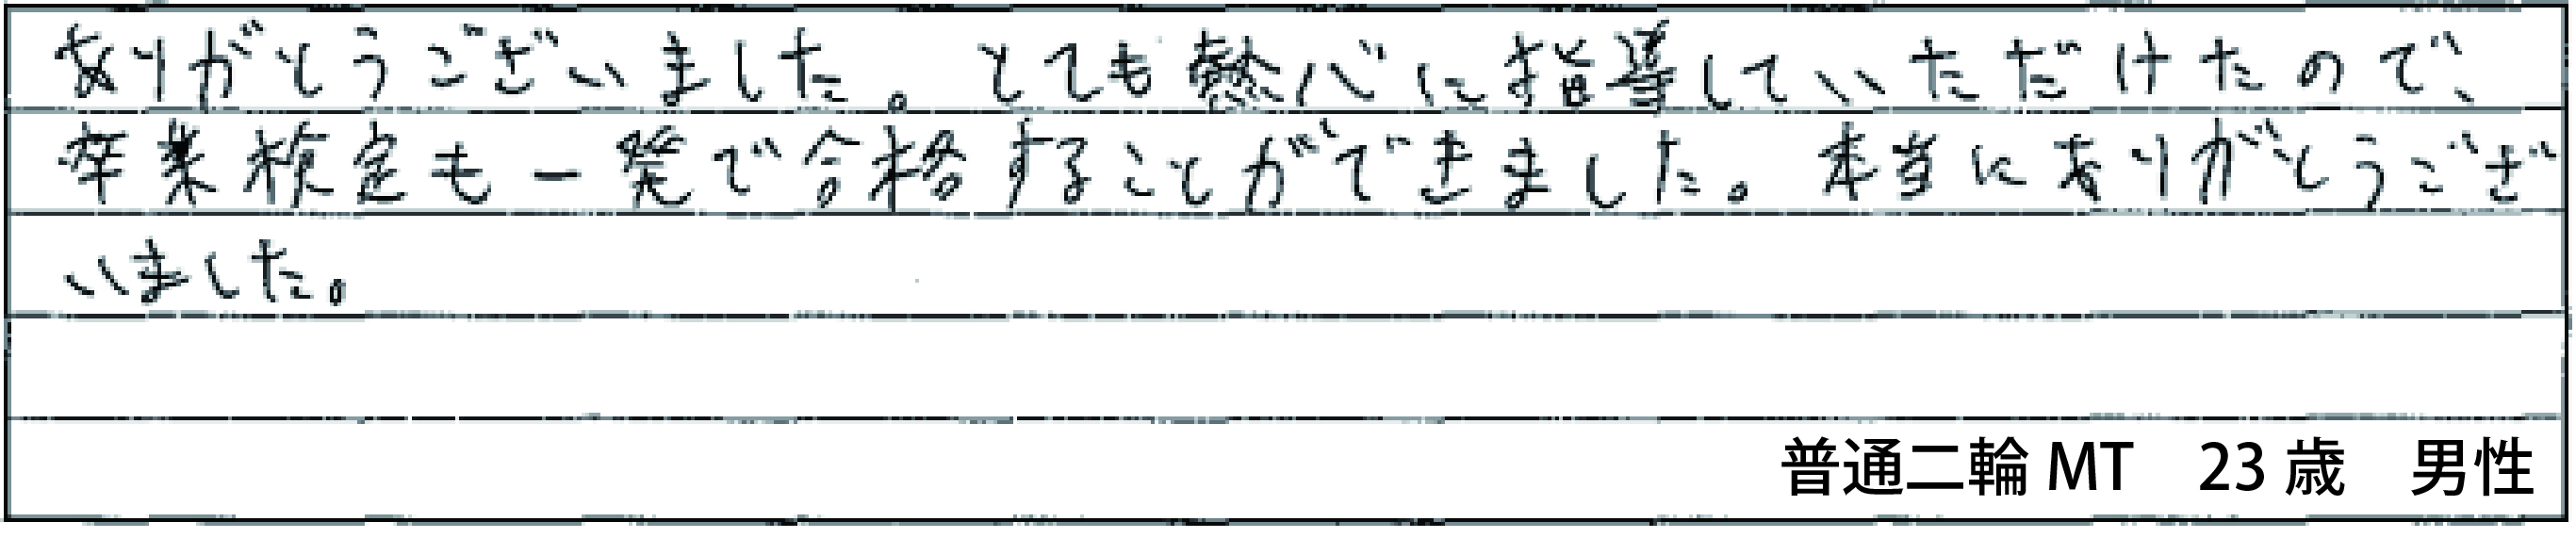 ありがとうございました。とても熱心に指導していただけたので、
卒業検定も一発で合格することができました。本当にありがとうござ
いました。
普通二輪 MT　23 歳　男性